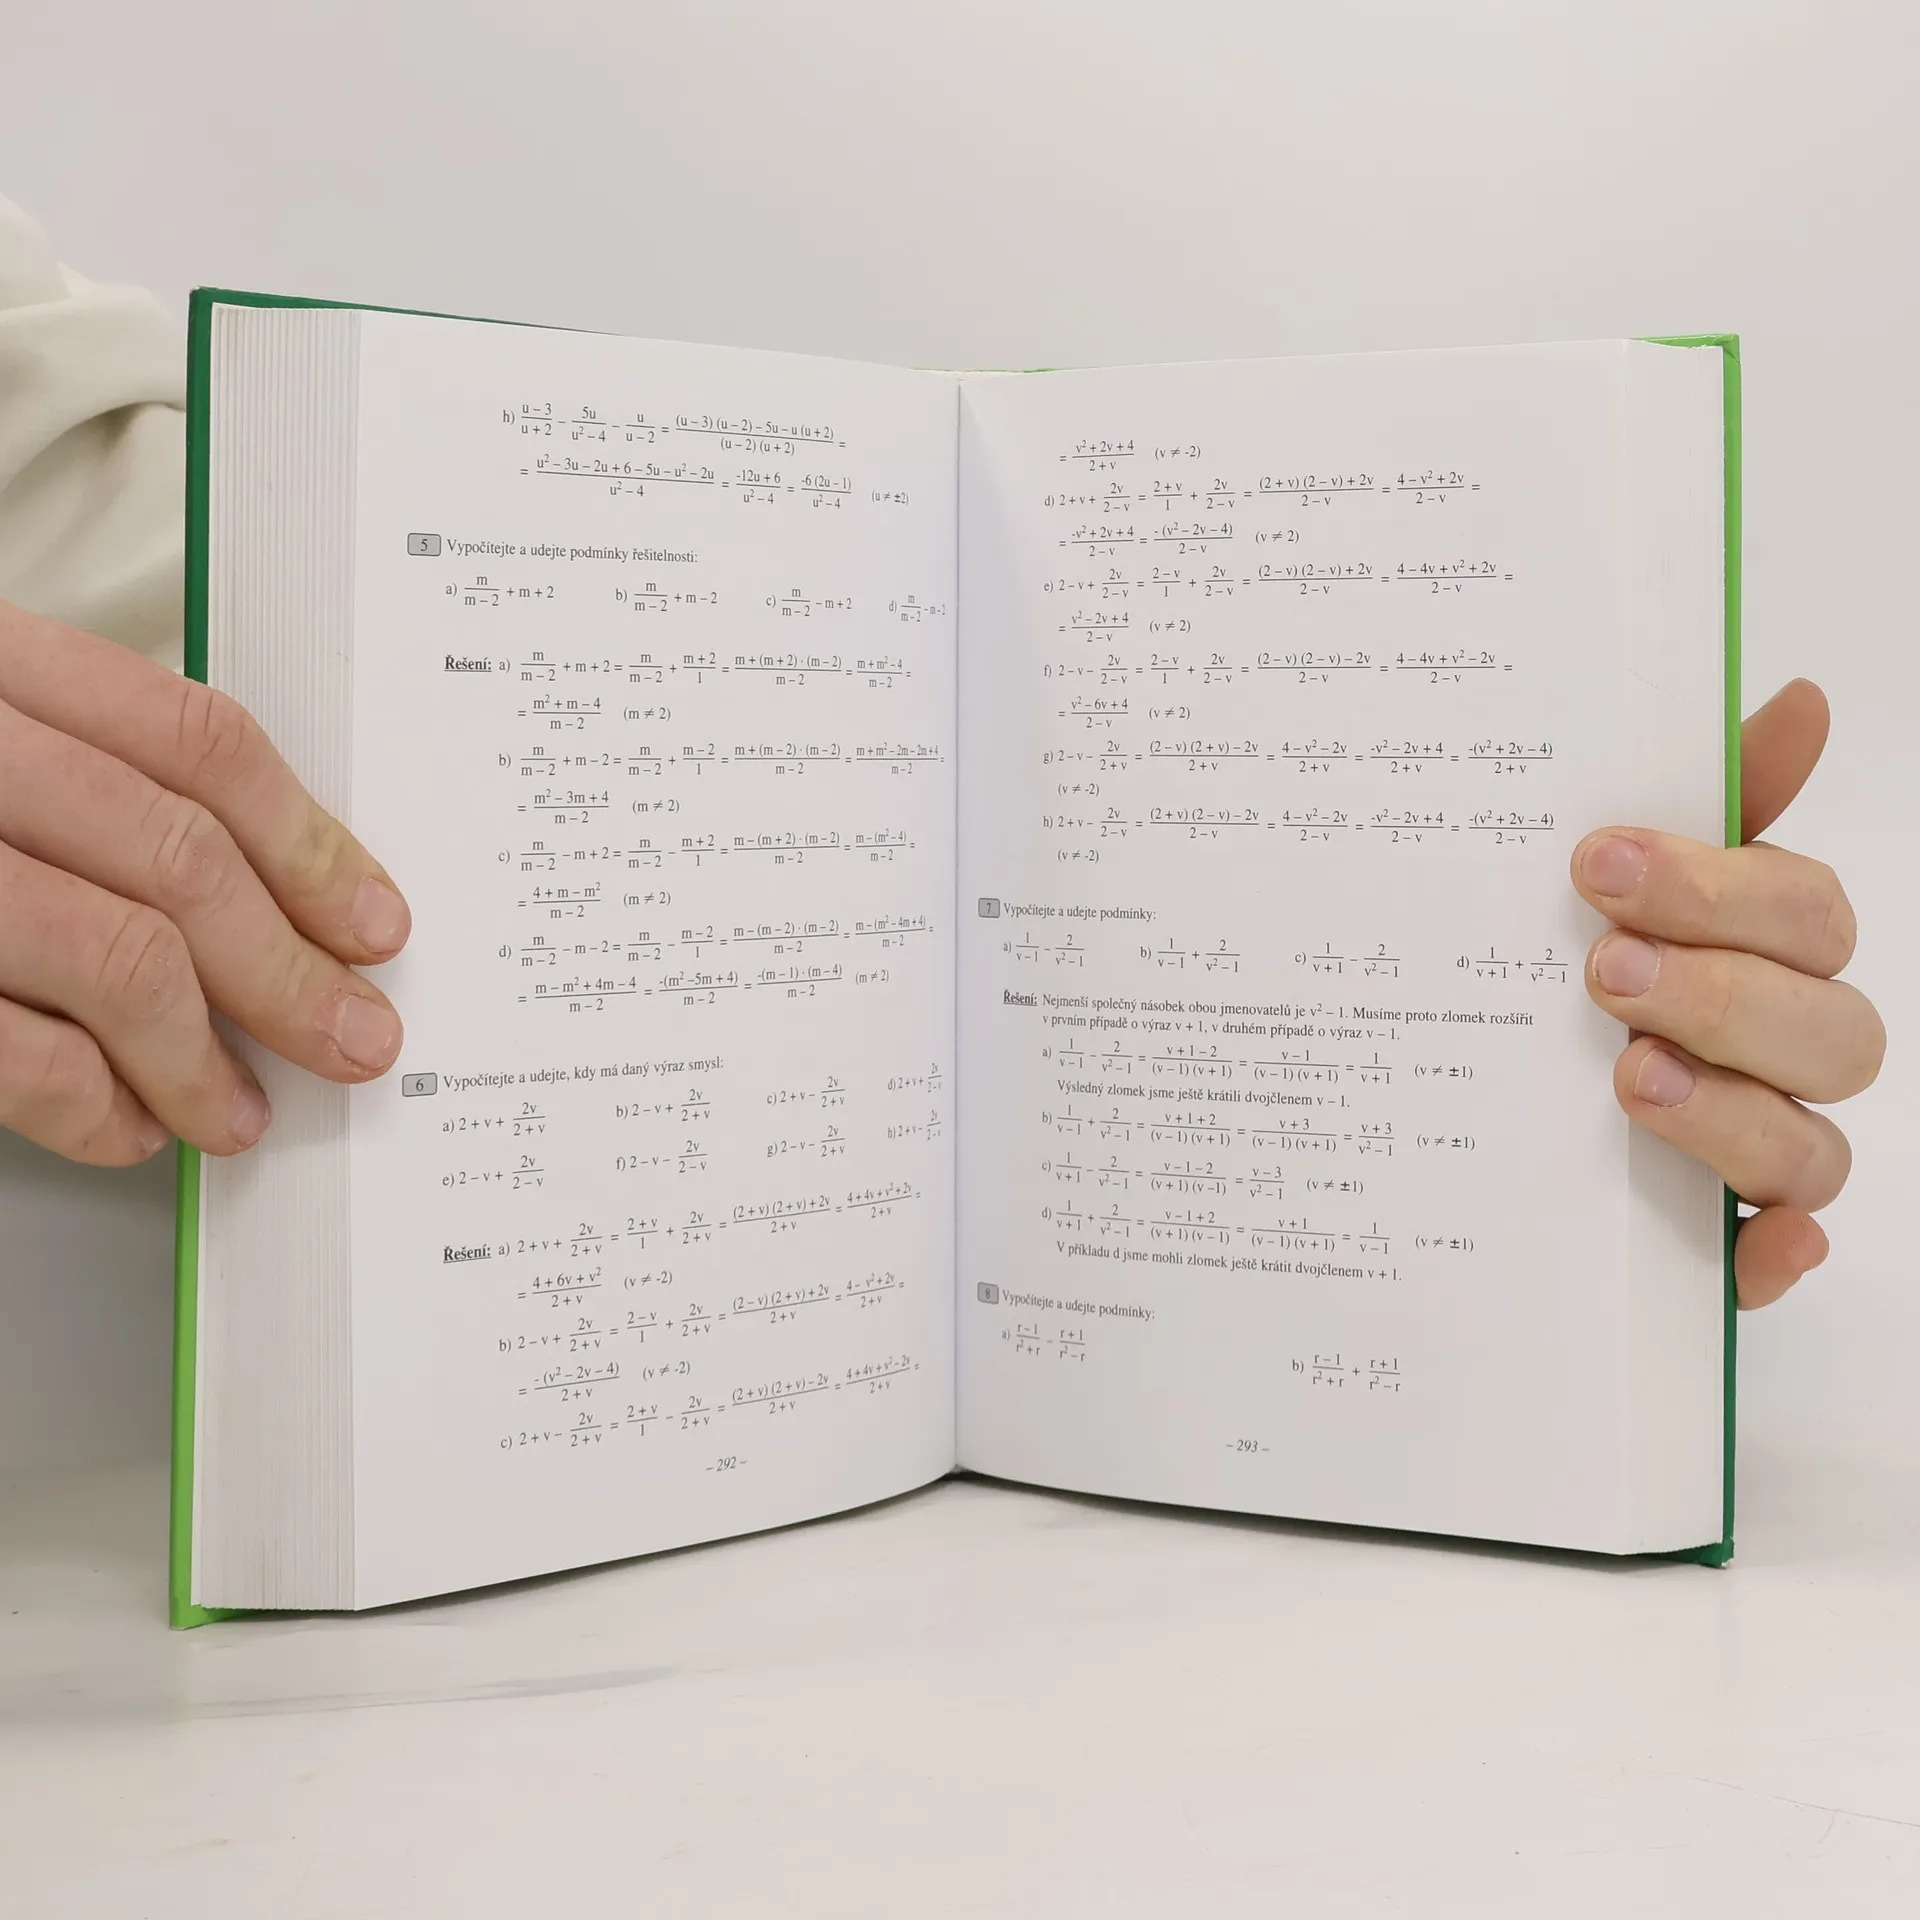 h) (u – 3)/(u + 2) – 5u/(u² – 4) – u/(u – 2) = ((u – 3) (u – 2) – 5u – u (u + 2))/((u – 2) (u + 2)) =
= (u² – 3u – 2u + 6 – 5u – u² – 2u)/(u² – 4) = (-12u + 6)/(u² – 4) = (-6 (2u – 1))/(u² – 4) (u ≠ ±2)
5 Vypočítejte a udejte podmínky řešitelnosti:
a) m/(m – 2) + m + 2 b) m/(m – 2) + m – 2 c) m/(m – 2) – m + 2 d) m/(m – 2) – m – 2
Řešení: a) m/(m – 2) + m + 2 = m/(m – 2) + (m + 2)/1 = (m + (m + 2) · (m – 2))/(m – 2) = (m + m² – 4)/(m – 2) =
= (m² + m – 4)/(m – 2) (m ≠ 2)
b) m/(m – 2) + m – 2 = m/(m – 2) + (m – 2)/1 = (m + (m – 2) · (m – 2))/(m – 2) = (m + m² – 2m – 2m + 4)/(m – 2) =
= (m² – 3m + 4)/(m – 2) (m ≠ 2)
c) m/(m – 2) – m + 2 = m/(m – 2) – (m + 2)/1 = (m – (m + 2) · (m – 2))/(m – 2) = (m – (m² – 4))/(m – 2) =
= (4 + m – m²)/(m – 2) (m ≠ 2)
d) m/(m – 2) – m – 2 = m/(m – 2) – (m – 2)/1 = (m – (m – 2) · (m – 2))/(m – 2) = (m – (m² – 4m + 4))/(m – 2) =
= (m – m² + 4m – 4)/(m – 2) = (-(m² –5m + 4))/(m – 2) = (-(m – 1) · (m – 4))/(m – 2) (m ≠ 2)
6 Vypočítejte a udejte, kdy má daný výraz smysl:
a) 2 + v + 2v/(2 + v) b) 2 – v + 2v/(2 + v) c) 2 + v – 2v/(2 + v) d) 2 + v + 2v/(2 – v)
e) 2 – v + 2v/(2 – v) f) 2 – v – 2v/(2 – v) g) 2 – v – 2v/(2 + v) h) 2 + v – 2v/(2 – v)
Řešení: a) 2 + v + 2v/(2 + v) = (2 + v)/1 + 2v/(2 + v) = ((2 + v) (2 + v) + 2v)/(2 + v) = (4 + 4v + v² + 2v)/(2 + v) =
= (4 + 6v + v²)/(2 + v) (v ≠ -2)
b) 2 – v + 2v/(2 + v) = (2 – v)/1 + 2v/(2 + v) = ((2 – v) (2 + v) + 2v)/(2 + v) = (4 – v² + 2v)/(2 + v) =
= (- (v² – 2v – 4))/(2 + v) (v ≠ -2)
c) 2 + v – 2v/(2 + v) = (2 + v)/1 – 2v/(2 + v) = ((2 + v) (2 + v) – 2v)/(2 + v) = (4 + 4v + v² – 2v)/(2 + v) =
– 292 –
= (v² + 2v + 4)/(2 + v) (v ≠ -2)
d) 2 + v + 2v/(2 – v) = (2 + v)/1 + 2v/(2 – v) = ((2 + v) (2 – v) + 2v)/(2 – v) = (4 – v² + 2v)/(2 – v) =
= (-v² + 2v + 4)/(2 – v) = (- (v² – 2v – 4))/(2 – v) (v ≠ 2)
e) 2 – v + 2v/(2 – v) = (2 – v)/1 + 2v/(2 – v) = ((2 – v) (2 – v) + 2v)/(2 – v) = (4 – 4v + v² + 2v)/(2 – v) =
= (v² – 2v + 4)/(2 – v) (v ≠ 2)
f) 2 – v – 2v/(2 – v) = (2 – v)/1 + 2v/(2 – v) = ((2 – v) (2 – v) – 2v)/(2 – v) = (4 – 4v + v² – 2v)/(2 – v) =
= (v² – 6v + 4)/(2 – v) (v ≠ 2)
g) 2 – v – 2v/(2 + v) = ((2 – v) (2 + v) – 2v)/(2 + v) = (4 – v² – 2v)/(2 + v) = (-v² – 2v + 4)/(2 + v) = (-(v² + 2v – 4))/(2 + v)
(v ≠ -2)
h) 2 + v – 2v/(2 – v) = ((2 + v) (2 – v) – 2v)/(2 – v) = (4 – v² – 2v)/(2 – v) = (-v² – 2v + 4)/(2 – v) = (-(v² + 2v – 4))/(2 – v)
(v ≠ -2)
7 Vypočítejte a udejte podmínky:
a) 1/(v – 1) – 2/(v² – 1) b) 1/(v – 1) + 2/(v² – 1) c) 1/(v + 1) – 2/(v² – 1) d) 1/(v + 1) + 2/(v² – 1)
Řešení: Nejmenší společný násobek obou jmenovatelů je v² – 1. Musíme proto zlomek rozšířit
v prvním případě o výraz v + 1, v druhém případě o výraz v – 1.
a) 1/(v – 1) – 2/(v² – 1) = (v + 1 – 2)/((v – 1) (v + 1)) = (v – 1)/((v – 1) (v + 1)) = 1/(v + 1) (v ≠ ±1)
Výsledný zlomek jsme ještě krátili dvojčlenem v – 1.
b) 1/(v – 1) + 2/(v² – 1) = (v + 1 + 2)/((v – 1) (v + 1)) = (v + 3)/((v – 1) (v + 1)) = (v + 3)/(v² – 1) (v ≠ ±1)
c) 1/(v + 1) – 2/(v² – 1) = (v – 1 – 2)/((v + 1) (v –1)) = (v – 3)/(v² – 1) (v ≠ ±1)
d) 1/(v + 1) + 2/(v² – 1) = (v – 1 + 2)/((v + 1) (v – 1)) = (v + 1)/((v – 1) (v + 1)) = 1/(v – 1) (v ≠ ±1)
V příkladu d jsme mohli zlomek ještě krátit dvojčlenem v + 1.
8 Vypočítejte a udejte podmínky:
a) (r – 1)/(r² + r) – (r + 1)/(r² – r) b) (r – 1)/(r² + r) + (r + 1)/(r² – r)
– 293 –